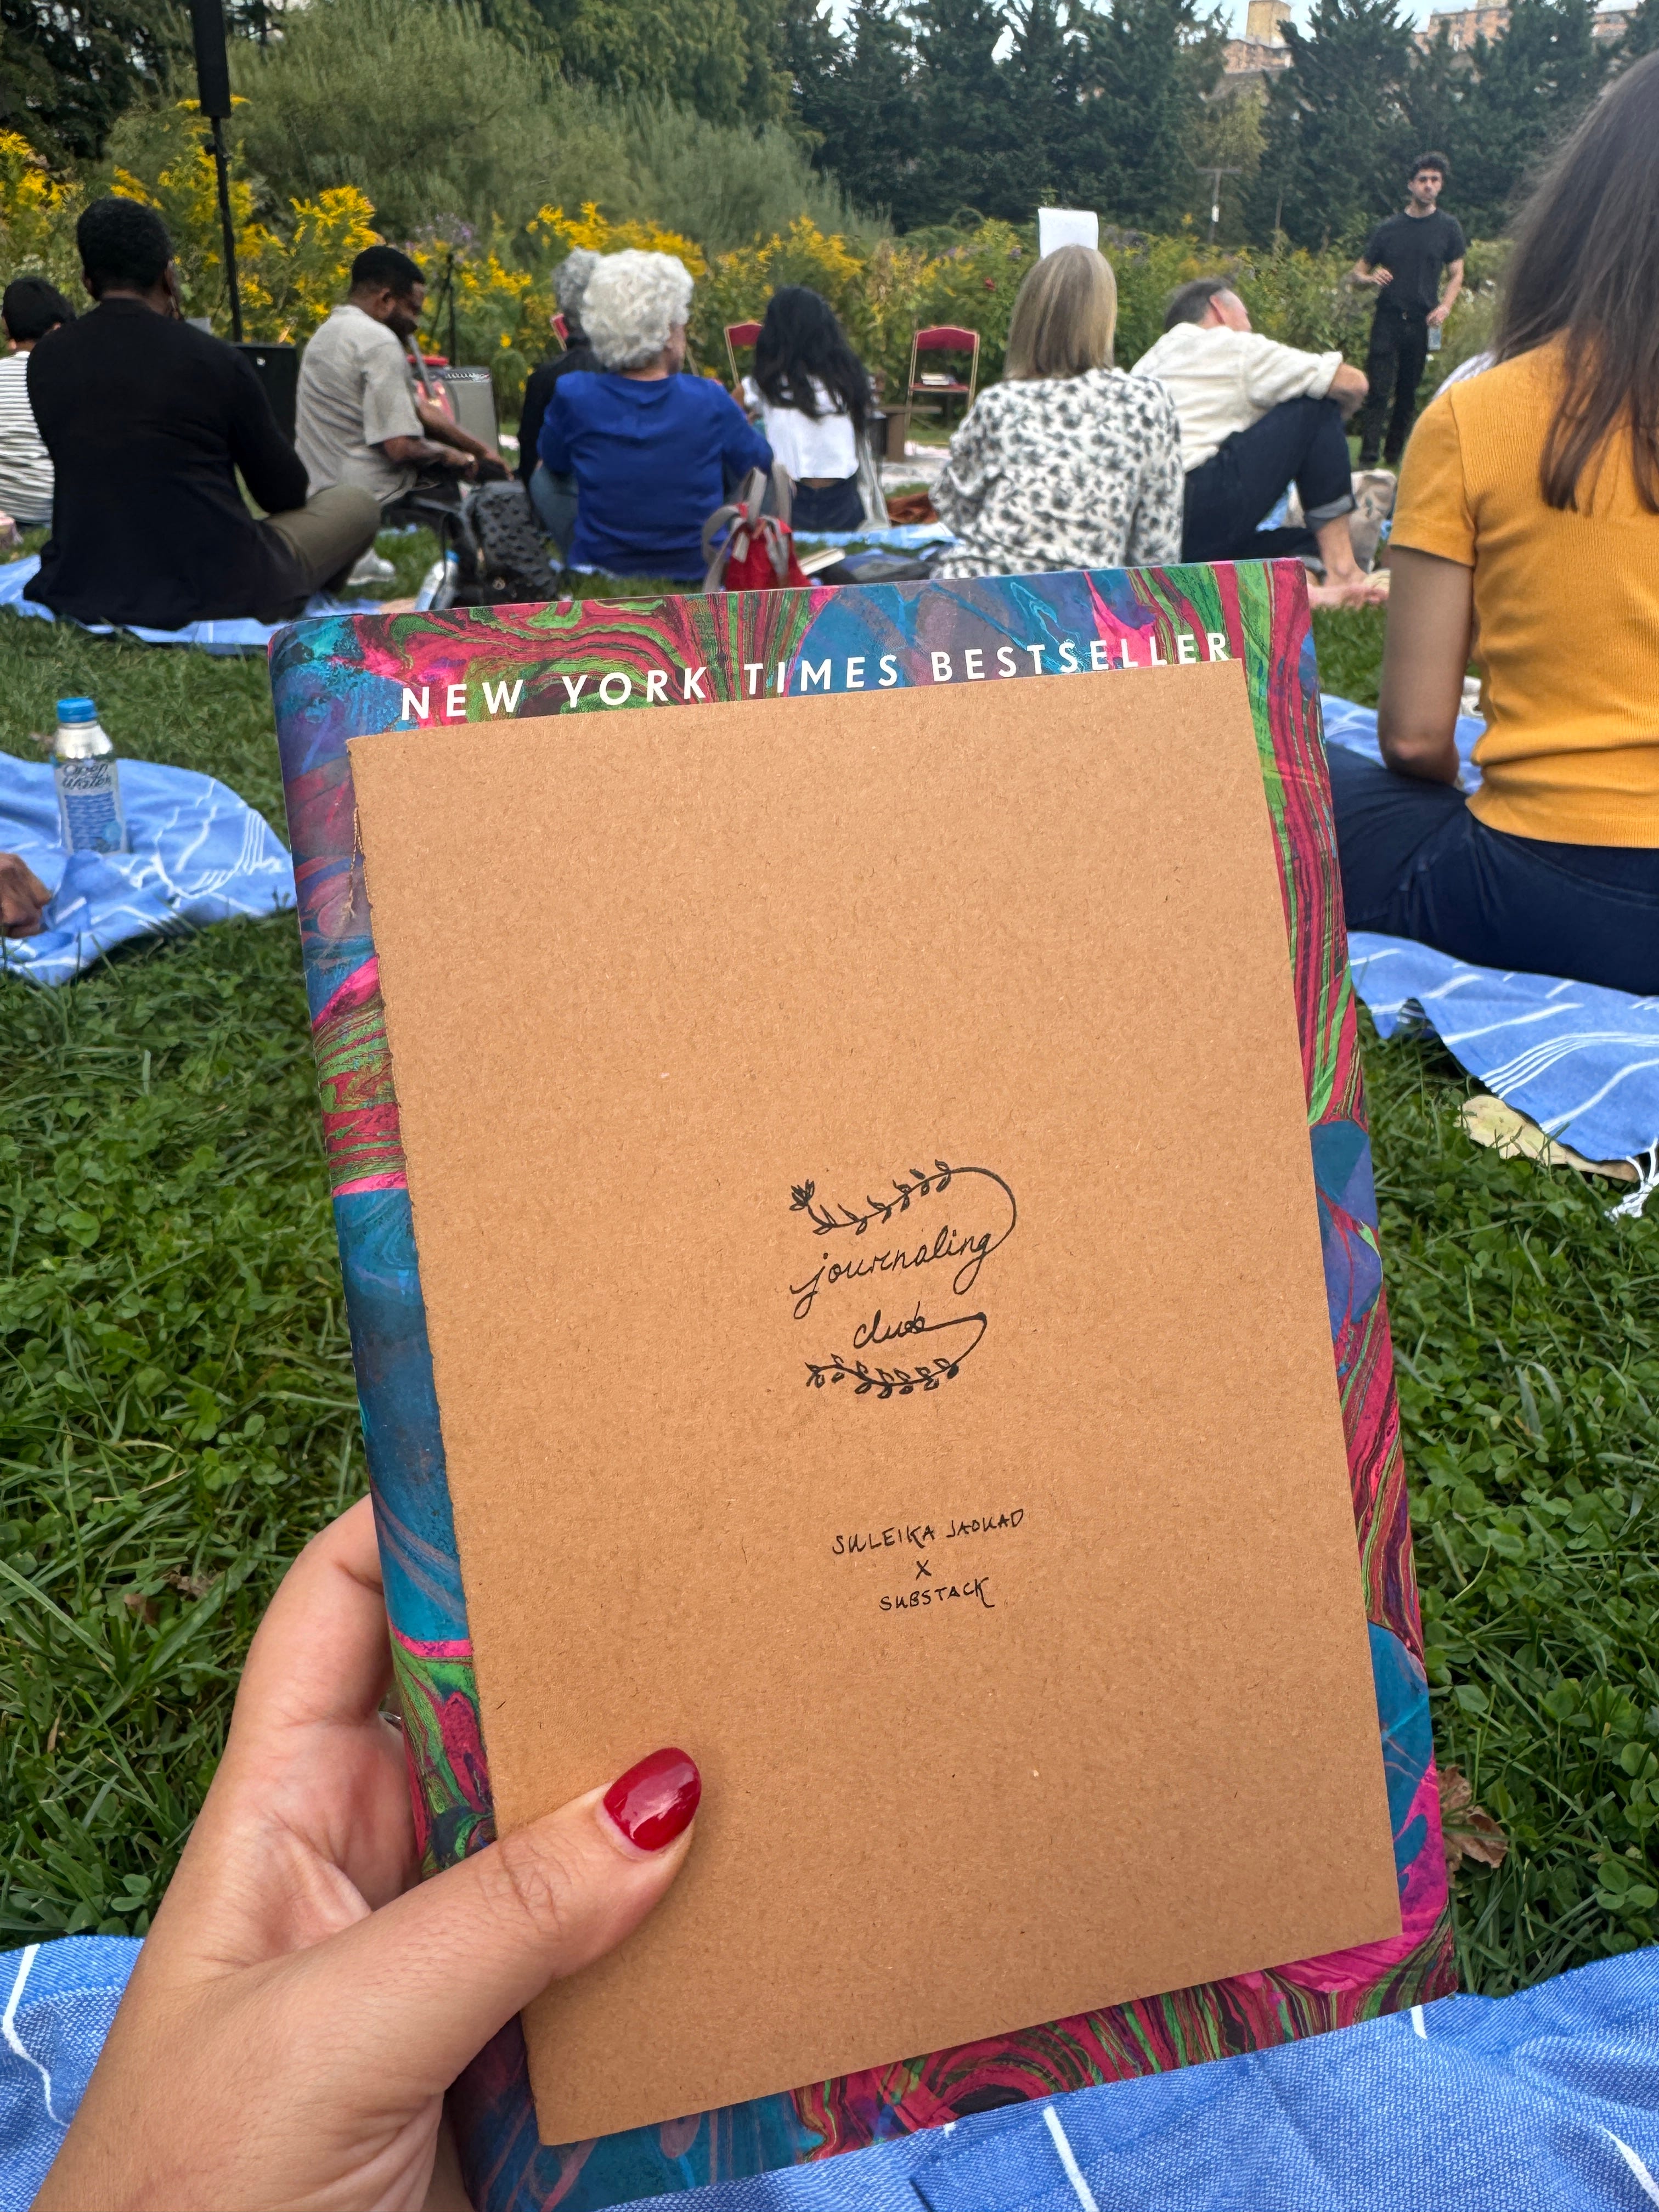 NEW YORK TIMES BESTSELLER
journaling
club
SULEIKA JAOUAD
X
SUBSTACK
Open
Water